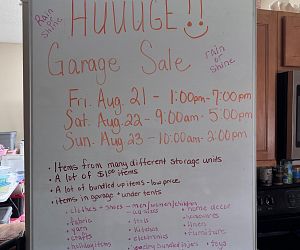 HUUUGE!!
Rain
or
Shine
rain
or
shine
Garage Sale
Fri. Aug. 21 - 1:00pm - 7:00pm
Sat. Aug. 22 - 9:00am - 5:00pm
Sun. Aug. 23 - 10:00am - 2:00pm
• Items from many different storage units
• A lot of $1.00 items
• A lot of bundled up items - low price
• items in garage + under tents
• clothes + shoes - men/women/children
all sizes
• home decor
• fabric
• tools
• housewares
• yarn
• Kitchen
• linens
• crafts
• electronics
• furniture
• holiday items
• toys